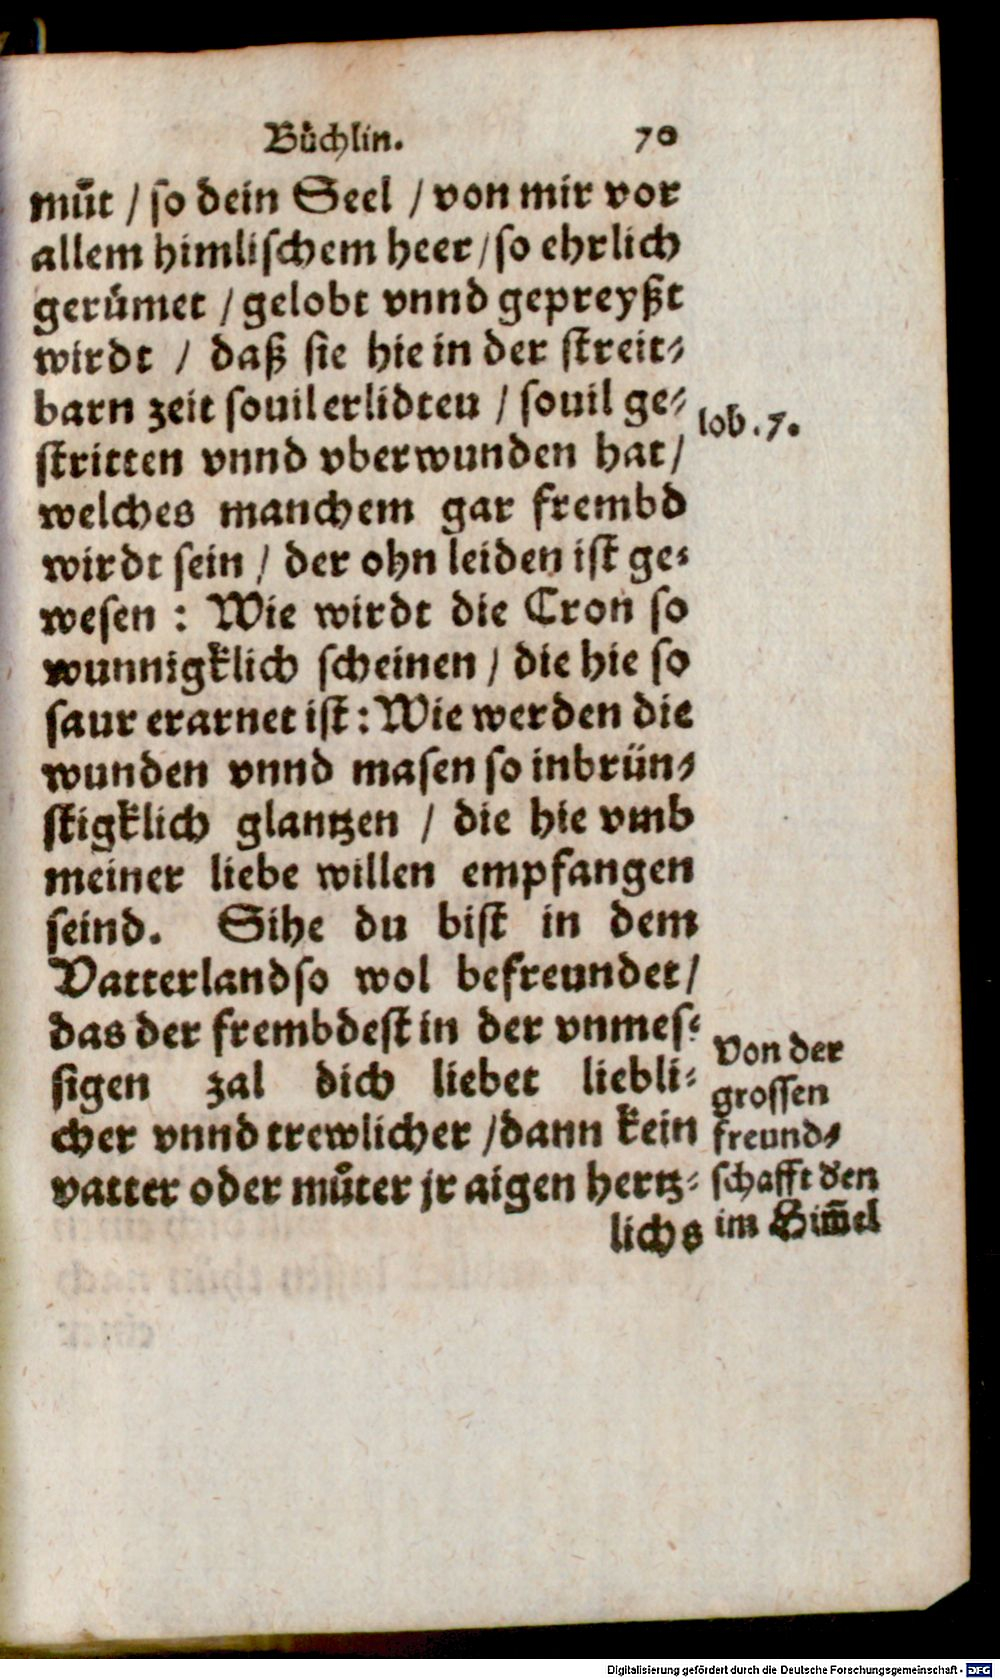 Buͤchlin. 70
muͤt / so dein Seel / von mir vor
allem himlischem heer / so ehrlich
geruͤmet / gelobt vnnd gepreyßt
wirdt / daß sie hie in der streit⸗
barn zeit souil erlidteu / souil ge⸗
stritten vnnd vberwunden hat /
welches manchem gar frembd
wirdt sein / der ohn leiden ist ge⸗
wesen : Wie wirdt die Cron so
wunnigklich scheinen / die hie so
saur erarnet ist : Wie werden die
wunden vnnd masen so inbrün⸗
stigklich glantzen / die hie vmb
meiner liebe willen empfangen
seind. Sihe du bist in dem
Vatterlandso wol befreundet /
das der frembdest in der vnmes⸗
sigen zal dich liebet liebli⸗
cher vnnd trewlicher / dann kein
vatter oder muͤter jr aigen hertz⸗
lichs
Iob. 7.
Von der
grossen
freund⸗
schafft den
im Him̃el
Digitalisierung gefördert durch die Deutsche Forschungsgemeinschaft - DFG